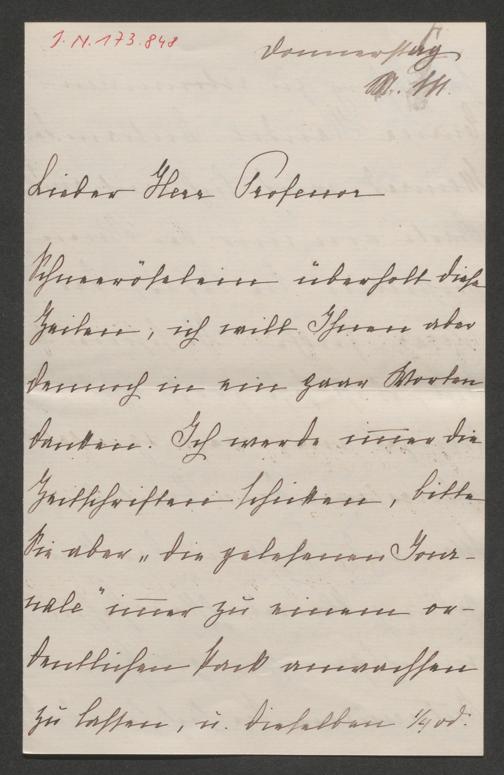 J.N. 173.848
Donnerstag
Lieber Herr Professor
Schneeröselein überholt diese
Zeilen, ich will Ihnen aber
dennoch in ein paar Worten
danken. Ich werde im̅er die
Zeitschriften schicken, bitte
Sie aber „die gelesenen Jour-
nale" im̅er zu einem or-
dentlichen Pack anwachsen
zu lassen, u. dieselben 1/4 od.